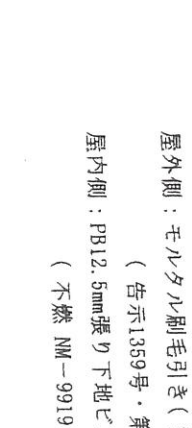 屋外側：モルタル刷毛引き(
( 告示1359号・第
屋内側：PB12.5mm張り下地ビ
( 不燃 NM－9919